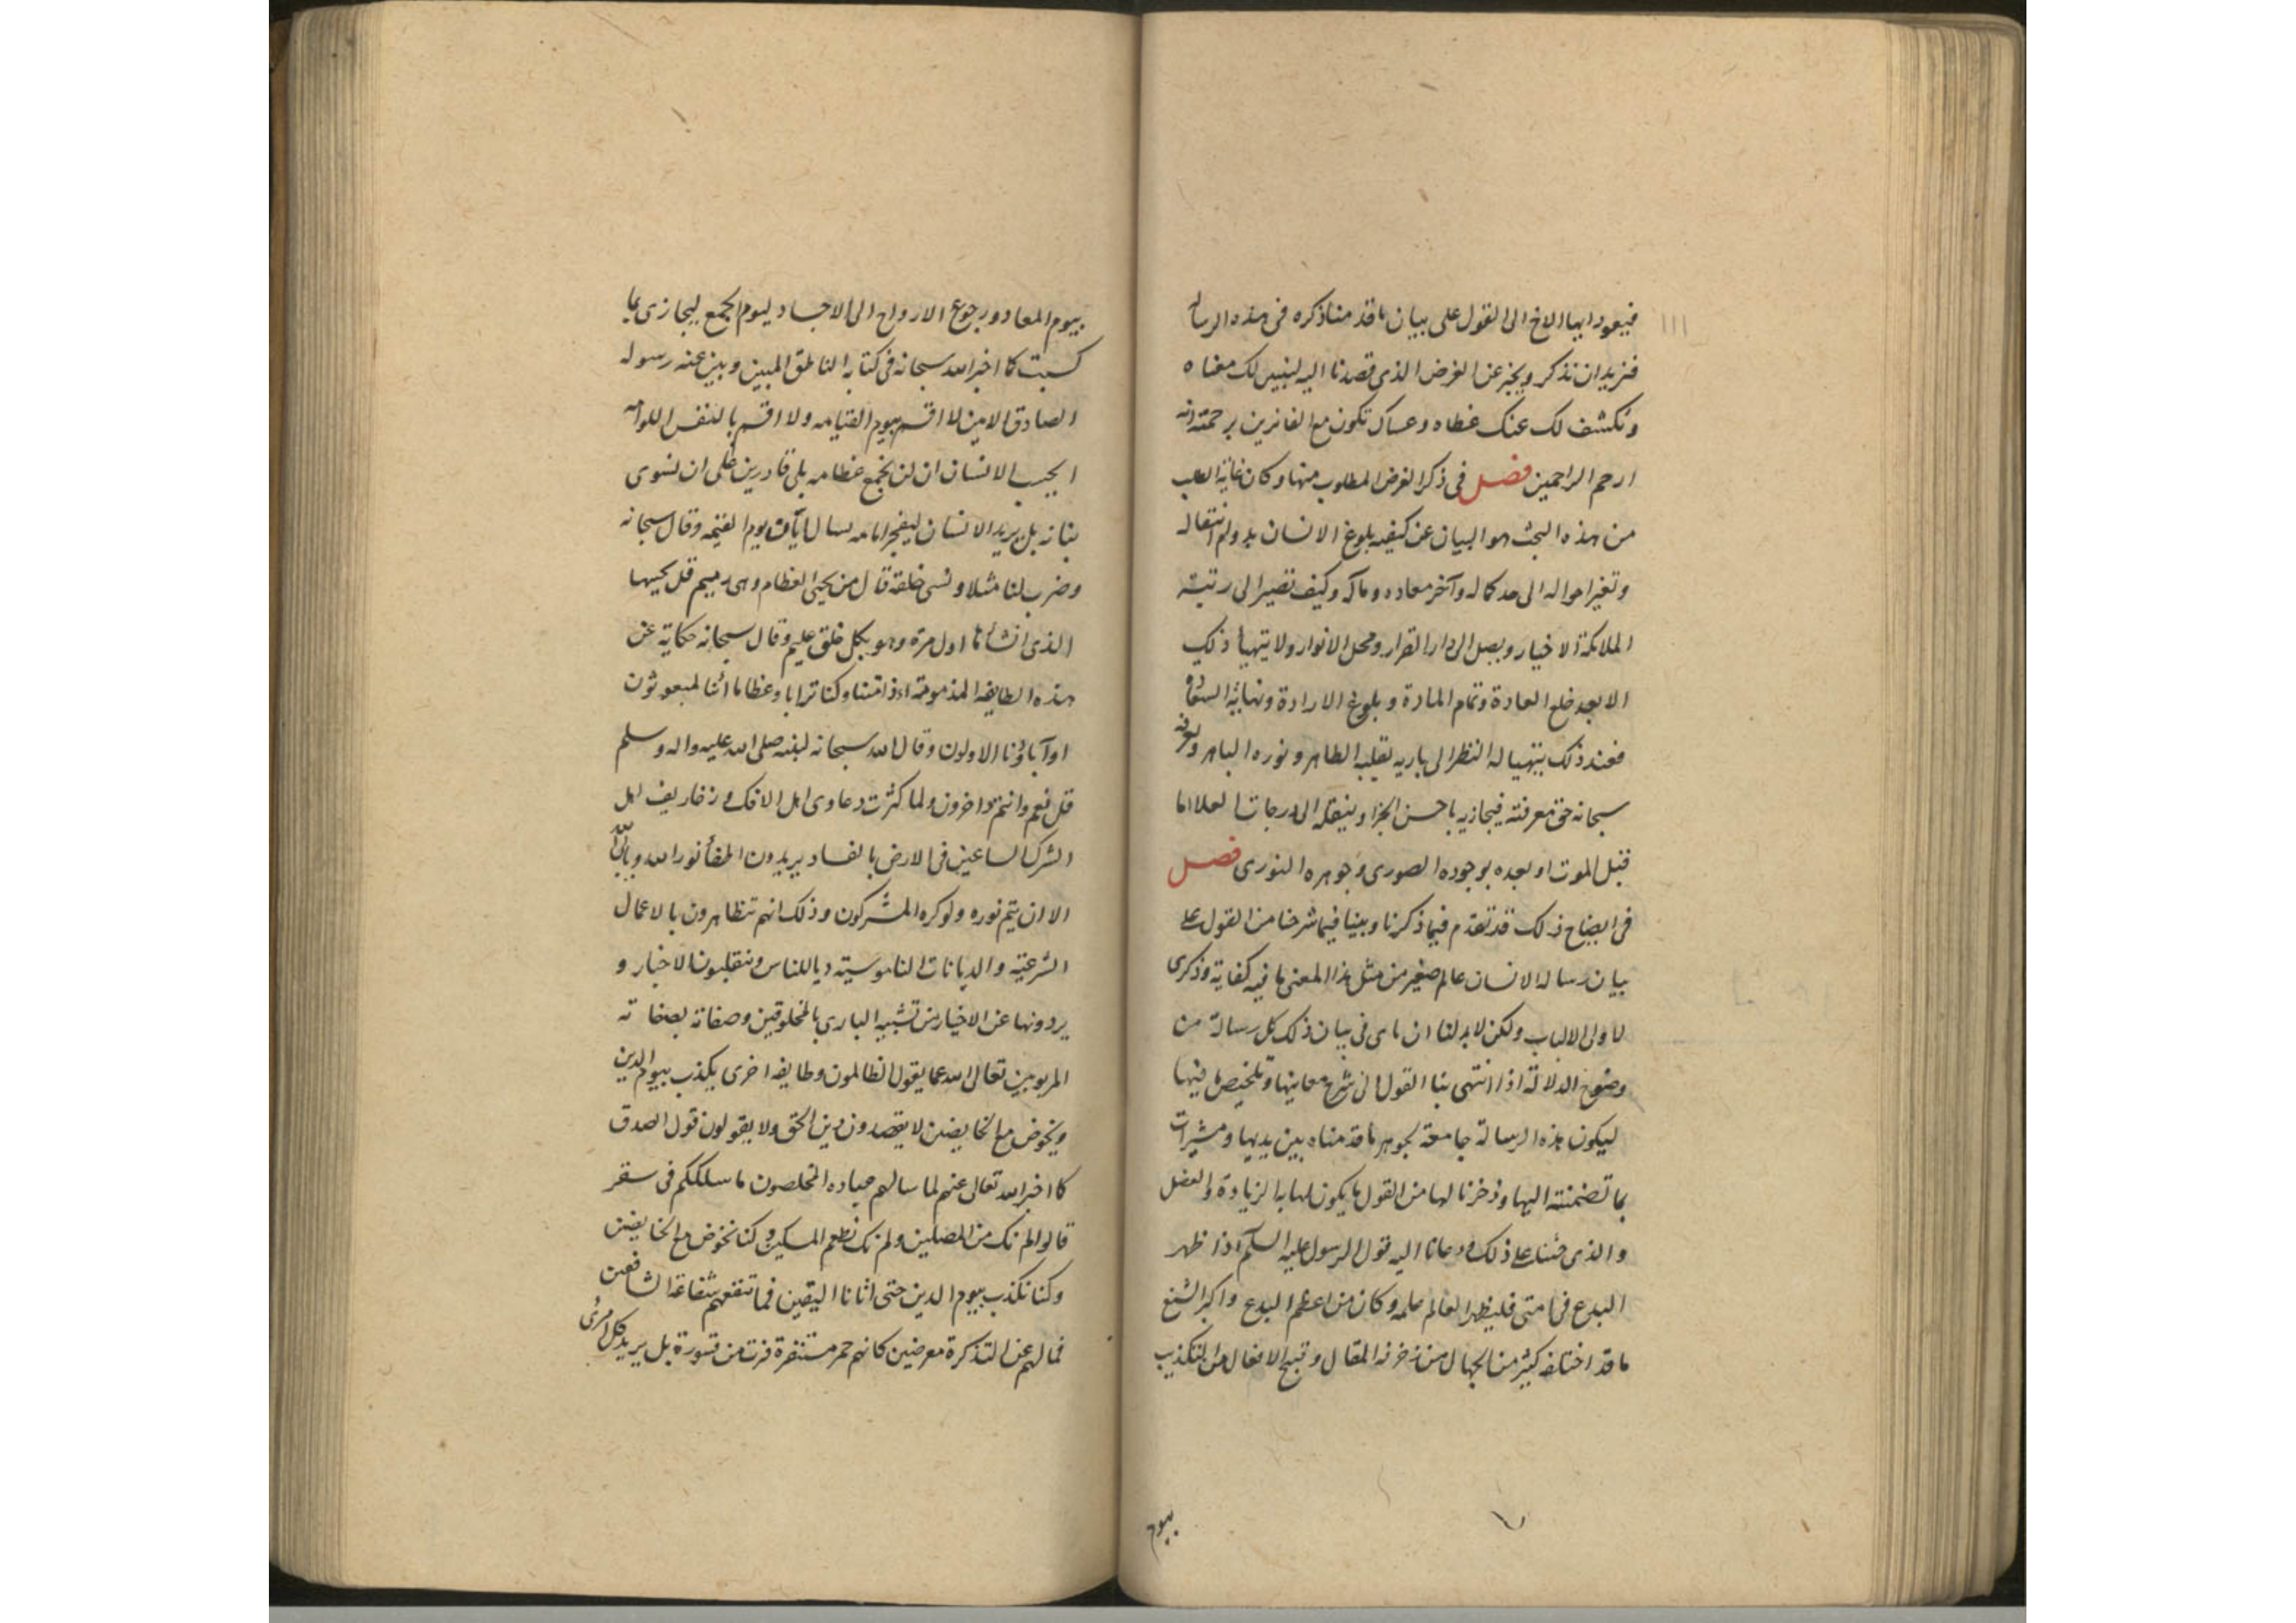 فيعود ايها الاخ الى القول على بيان ما قدمنا ذكره فى هذه الرسالة
فنريد ان نذكر ونخبر عن الغرض الذى قصدنا اليه لنبين لك معناه
ونكشف لك عنك غطاه وعساك تكون مع الفائزين برحمته انه
ارحم الراحمين فصل فى ذكر الغرض المطلوب منها وكان غاية الطلب
من هذه البحث هو البيان عن كيفيه بلوغ الانسان بدوام انتقاله
وتغير احواله الى حد كماله وآخر معاده ومآله وكيف تصير الى رتبة
الملائكة الاخيار ويصل الى دار القرار ومحل الانوار ولا يتهيأ ذلك
الا بعد خلع العادة وتمام المادة وبلوغ الارادة ونهاية
فعند ذلك يتهيا له النظر الى باريه بقلبه الطاهر ونوره الباهر ويعرفه
سبحانه حق معرفته فيجازيه باحسن الجزا وينقله الى درجات العلا اما
قبل الموت او بعده بوجوده الصورى وجوهره النورى فصل
فى ايضاح ذلك قد تقدم فيما ذكرنا وبينا فيما شرحنا من القول على
بيان رساله الانسان عالم صغير من مثل هذا المعنى ما فيه كفاية وذكرى
لاولى الالباب ولكن لا بد لنا ان ناى فى بيان ذلك كل رسالة من
وضوح الدلالة اذا انتهى بنا القول الى شرح معاينها وتلخيص ما فيها
ليكون هذه الرسالة جامعة لجوهر ما قدمناه بين يديها ومشيرات
بما تضمنته اليها وذخرنا لها من القول ما يكون لها به الزيادة والفضل
والذى حثنا على ذلك ودعانا اليه قول الرسول عليه السلم اذا ظهر
البدع فى امتى فليظهر العالم علمه وكان من اعظم البدع واكبر الشنع
ما قد اختلفه كثير من الجهال من زخرفه المقال وقبيح الافعال من التكذيب
بيوم
بيوم المعاد ورجوع الارواح الى الاجساد ليوم الجمع ليجازى بما
كسبت كما اخبر الله سبحانه فى كتابه الناطق المبين وبين عنه رسوله
الصادق الامين لا اقسم بيوم القيامه ولا اقسم بالنفس اللوامه
ايحسب الانسان ان لن نجمع عظامه بلى قادرين على ان نسوى
بنانه بل يريد الانسان ليفجر امامه يسال ايان يوم القيمه وقال سبحانه
وضرب لنا مثلا ونسى خلقه قال من يحيى العظام وهى رميم قل يحييها
الذى انشأها اول مرة وهو بكل خلق عليم وقال سبحانه حكاية عن
هذه الطايفه المذمومة ءاذا متنا وكنا ترابا وعظاما ائنا لمبعوثون
اوآباؤنا الاولون وقال الله سبحانه لنبيه صلى الله عليه واله وسلم
قل نعم وانتم داخرون ولما كثرت دعاوى اهل الافك وزخاريف اهل
الشرك الساعين فى الارض بالفساد يريدون اطفأ نور الله ويأبى الله
الا ان يتم نوره ولو كره المشركون وذلك انهم تتظاهرون بالاعمال
الشرعية والديانات الناموسية رياء للناس وينقلبون الاخبار و
يردونها عن الاخيار من تشبيه البارى بالمخلوقين وصفاته بصفاته
المربوبين تعالى الله عما يقول الظالمون وطايفه اخرى يكذب بيوم الدين
ويخوض مع الخايضين لا يقصدون دين الحق ولا يقولون قول الصدق
كما اخبر الله تعالى عنهم لما سالهم عباده المخلصون ما سلككم فى سقر
قالوا لم نك من المصلين ولم نك نطعم المسكين وكنا نخوض مع الخايضين
وكنا نكذب بيوم الدين حتى اتانا اليقين فما تنفعهم شفاعة الشافعين
فما لهم عن التذكرة معرضين كانهم حمر مستنفرة فرت من قسورة بل يريد كل امرئ